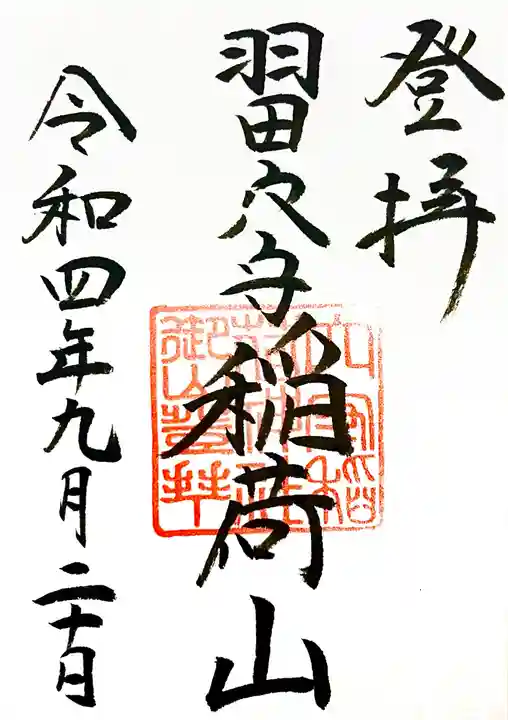 登拝
羽田穴守稲荷山
令和四年九月二十日